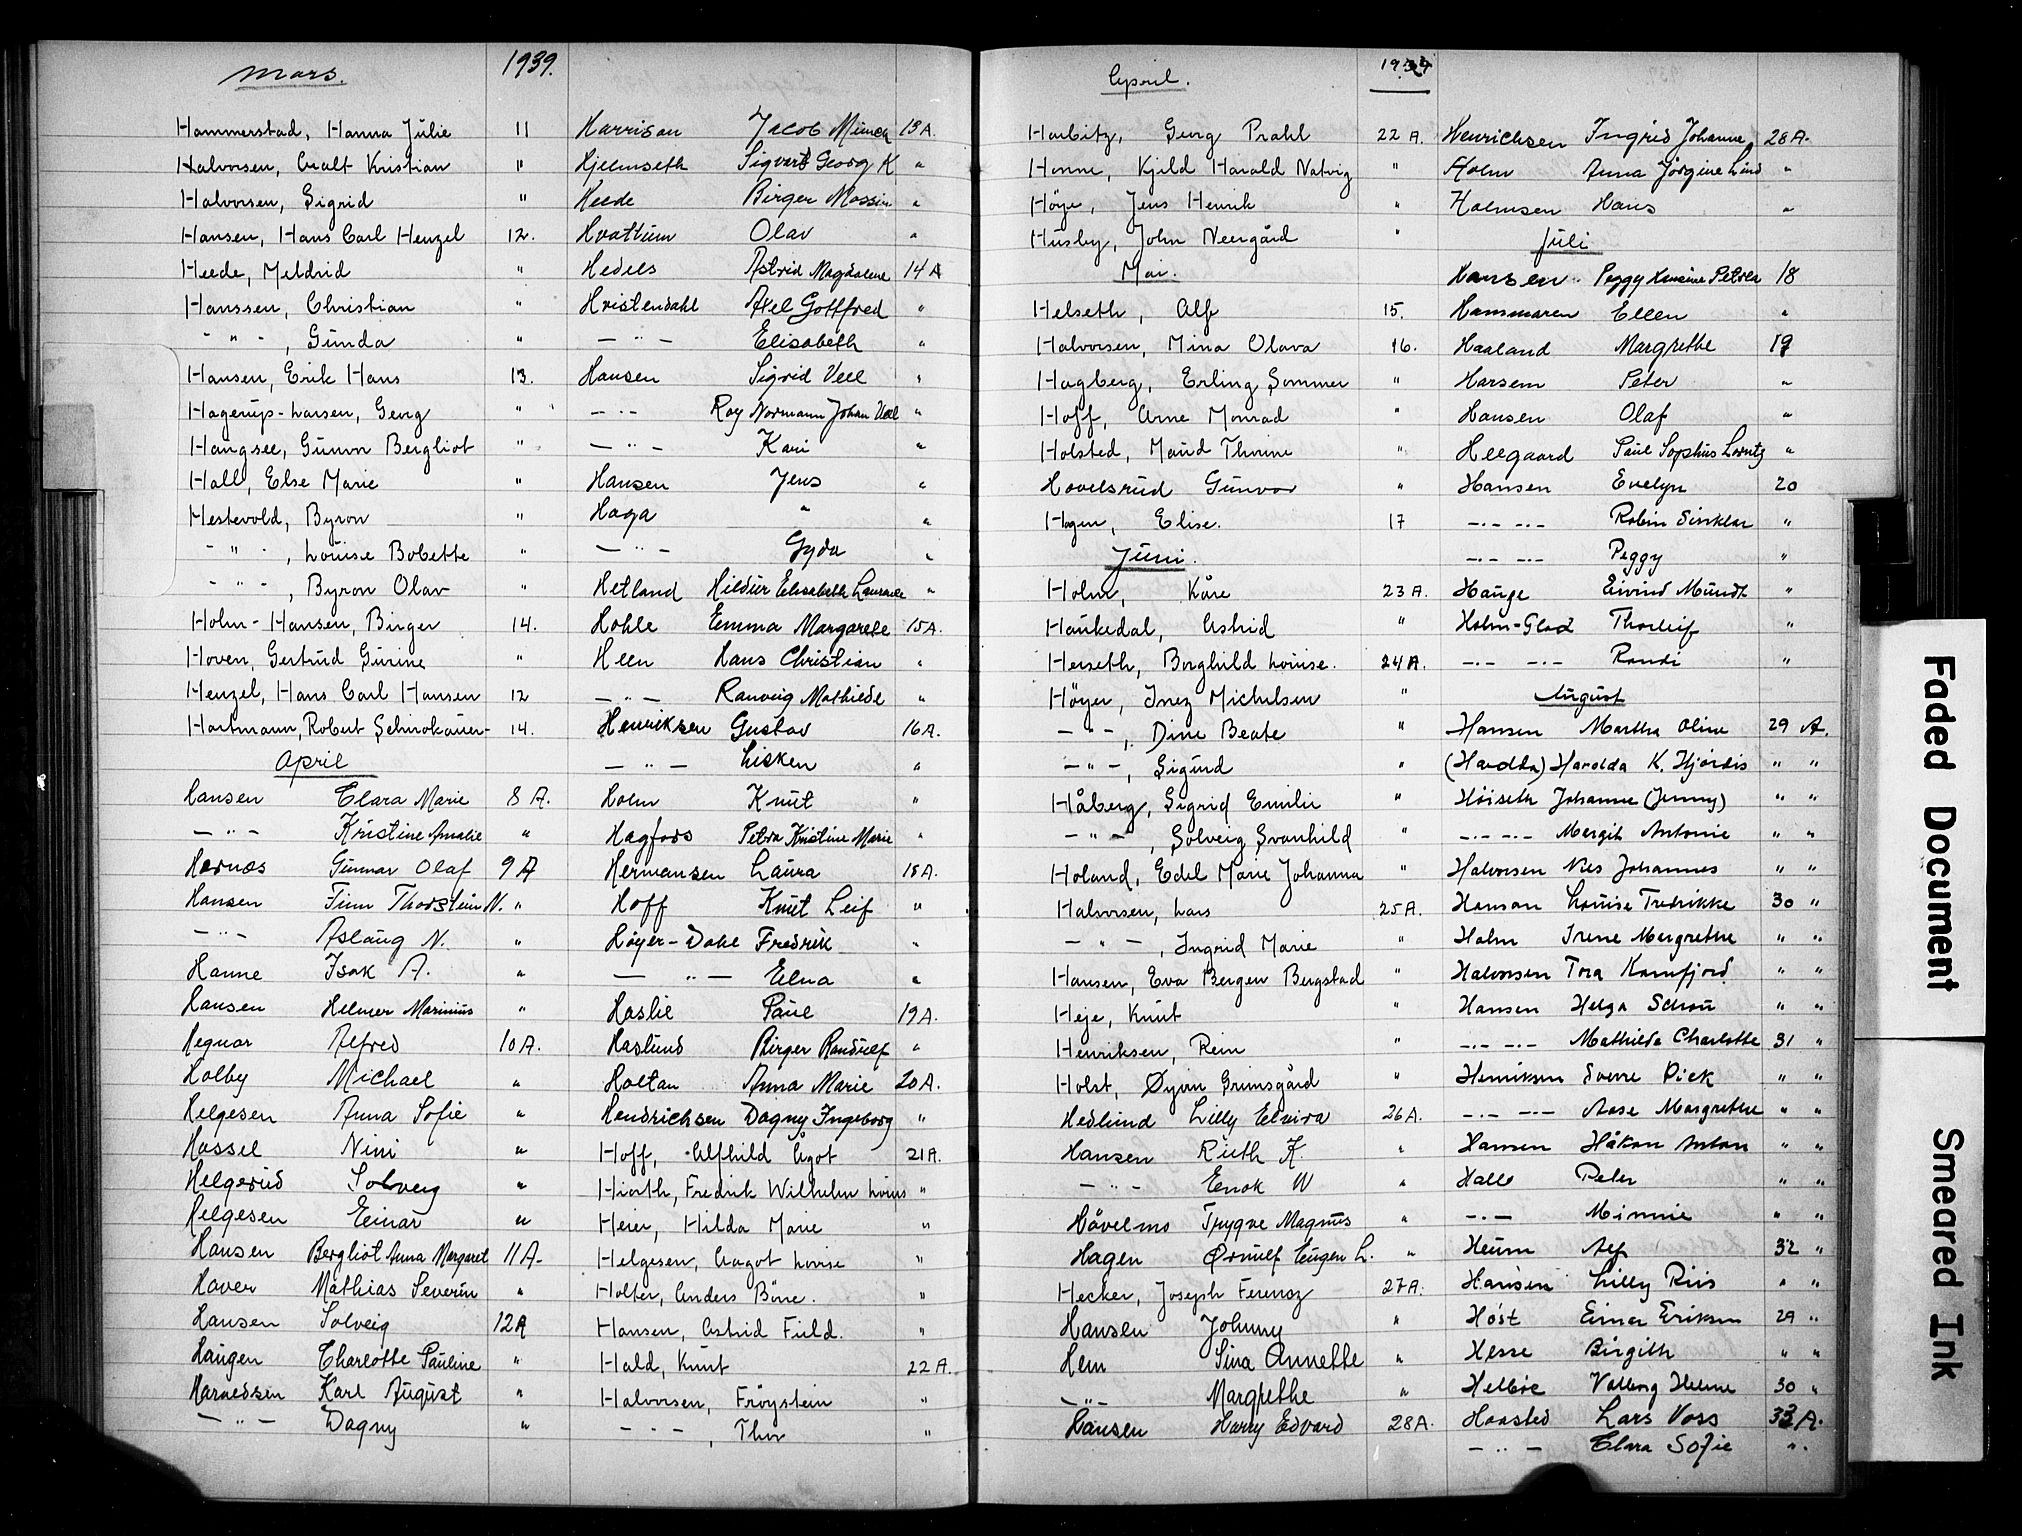 Mars. 1939.
Hammerstad, Hanna Julie 11
Halvorsen, Kristian "
Halvorsen, Sigrid "
Hansen, Hans Carl Henzel 12.
Heede, Meldrid "
Hanssen, Christian "
- " - , Gunda "
Hansen, Erik Hans 13.
Hagerup-Larsen, Georg "
Haugsee, Gunvor Bergliot "
Hall, Else Marie "
Hestevold, Byron "
- " - , Louise Bobette "
- " - , Byron Olav "
Holm-Hansen, Birger 14.
Hoven, Gertrud Gurine "
Henzel, Hans Carl Hansen 12
Hartmann, Robert 14.
April
Hansen Clara Marie 8 A.
- " - Kristine Amalie "
Hernæs Gunnar Olaf 9 A
Hansen Finn Thorstein N. "
- " - Aslaug N. "
Hanne Isak A. "
Hansen Helmer Marinius "
Hegnar Alfred 10 A.
Holby Michael "
Helgesen Anna Sofie "
Hassel Nini "
Helgerud Solveig "
Helgesen Einar "
Hansen Bergliot Anna Margaret 11 A.
Haver Mathias Severin "
Hansen Solveig 12 A
Haugen Charlotte Pauline "
Harnedsen Karl August "
- " - Dagny "
Harrison Jacob Munch 13 A.
Hjelmseth Sigvart Georg K "
Heede Birger Massin "
Hvattum Olav "
Hedels Astrid Magdalene 14 A
Hvistendahl Axel Gottfred "
- " - Elisabeth "
Hansen Sigrid Veel "
- " - Roy Normann Johan Veel "
- " - Kari "
Hansen Jens "
Haga " "
- " - Gyda "
Hetland Hildur Elisabeth "
Hohle Emma Margarete 15 A.
Heen Hans Christian "
- " - Ranveig Mathilde "
Henriksen Gustav 16 A.
- " - Lisken "
Holm Knut "
Hagfors Petra Kristine Marie "
Hermansen Laura 18 A.
Hoff Knut Leif "
Høyer-Dahl Fredrik "
- " - Elna "
Haslie Paul 19 A.
Haslund Birger Randulf "
Holtan Anna Marie 20 A.
Hendrichsen Dagny Ingeborg "
Hoff, Alfhild Agot 21 A.
Hiorth, Fredrik Wilhelm Louis "
Heier, Hilda Marie "
Helgesen, Aagot Lovise "
Holter, Anders Böne. "
Hansen, Astrid Fuld. "
Hald, Knut 22 A.
Halvorsen, Fröystein "
- " - , Thor "
April. 1939
Harbitz, Georg Prahl 22 A.
Honne, Kjeld Harald Natvig "
Höye, Jens Henrik "
Husby, John Neergård "
Mai.
Helseth, Alf 15.
Halvorsen, Mina Olava 16.
Hagberg, Erling Sommer "
Hoff, Arne Monrad "
Holsted, Maud Thorine "
Hovelsrud Gunvor "
Hagen, Elise. 17
Juni.
Holm, Kåre 23 A.
Haukedal, Astrid "
Herseth, Borghild Louise. 24 A.
Høyer, Inez Michelsen "
- " - , Dine Beate "
- " - , Sigurd "
Håberg, Sigrid Emilie "
- " - , Solveig Svanhild "
Holand, Edel Marie Johanna "
Halvorsen, Lars 25 A.
- " - , Ingrid Marie "
Hansen, Eva Bergen Bergstad "
Heje, Knut "
Henriksen, Rein "
Holst, Øyvin Grimsgård "
Hedlund Lilly Elvira 26 A.
Hansen Ruth K. "
- " - Enok W "
Håvelmo Trygve Magnus "
Hagen Ørnulf Eugen L. "
Hecker, Joseph Ferencz 27 A.
Hansen Johnny "
Hem Sina Annette "
- " - Margrethe "
Hansen Harry Edvard 28 A.
Henrichsen Ingrid Johanne 28 A.
Holm Anna Jörgine Lind "
Holmsen Hans "
Juli
Hansen Peggy Hansine Petrea 18
Hammaren Ellen "
Haaland Margrethe 19
Harsem Peter "
Hansen Olaf "
Heegaard Paul Sophus Lorentz "
Hansen Evelyn 20
- " - Robin Sinklar "
- " - Peggy "
Hauge Eivind Mundt "
Holm-Glad Thorleif "
- " - Randi "
August
Hansen Martha Oline 29 A.
(Hardda) Harolda K. Hjördis " "
Höiseth Johanne (Jenny) " "
- " - Margit Antonie " "
Halvorsen Nils Johannes " "
Hanson Louise Fredrikke 30 "
Holm Irene Margrethe " "
Halvorsen Tora Kornfjord " "
Hansen Helga Schou " "
- " - Mathilda Charlotte 31 "
Henriksen Sverre Dick " "
- " - Aase Margrethe " "
Hansen Håkon Anton " "
Halle Peter " "
- " - Minnie " "
Heum Alf 32 "
Hansen Lilly Riis " "
Höst Einar Eriksen 29 "
Hesse Birgith " "
Helböe Valborg Helene 30 "
Haasted Lars Voss 33 A.
- " - Clara Sofie ".
Faded Document
Smeared Ink